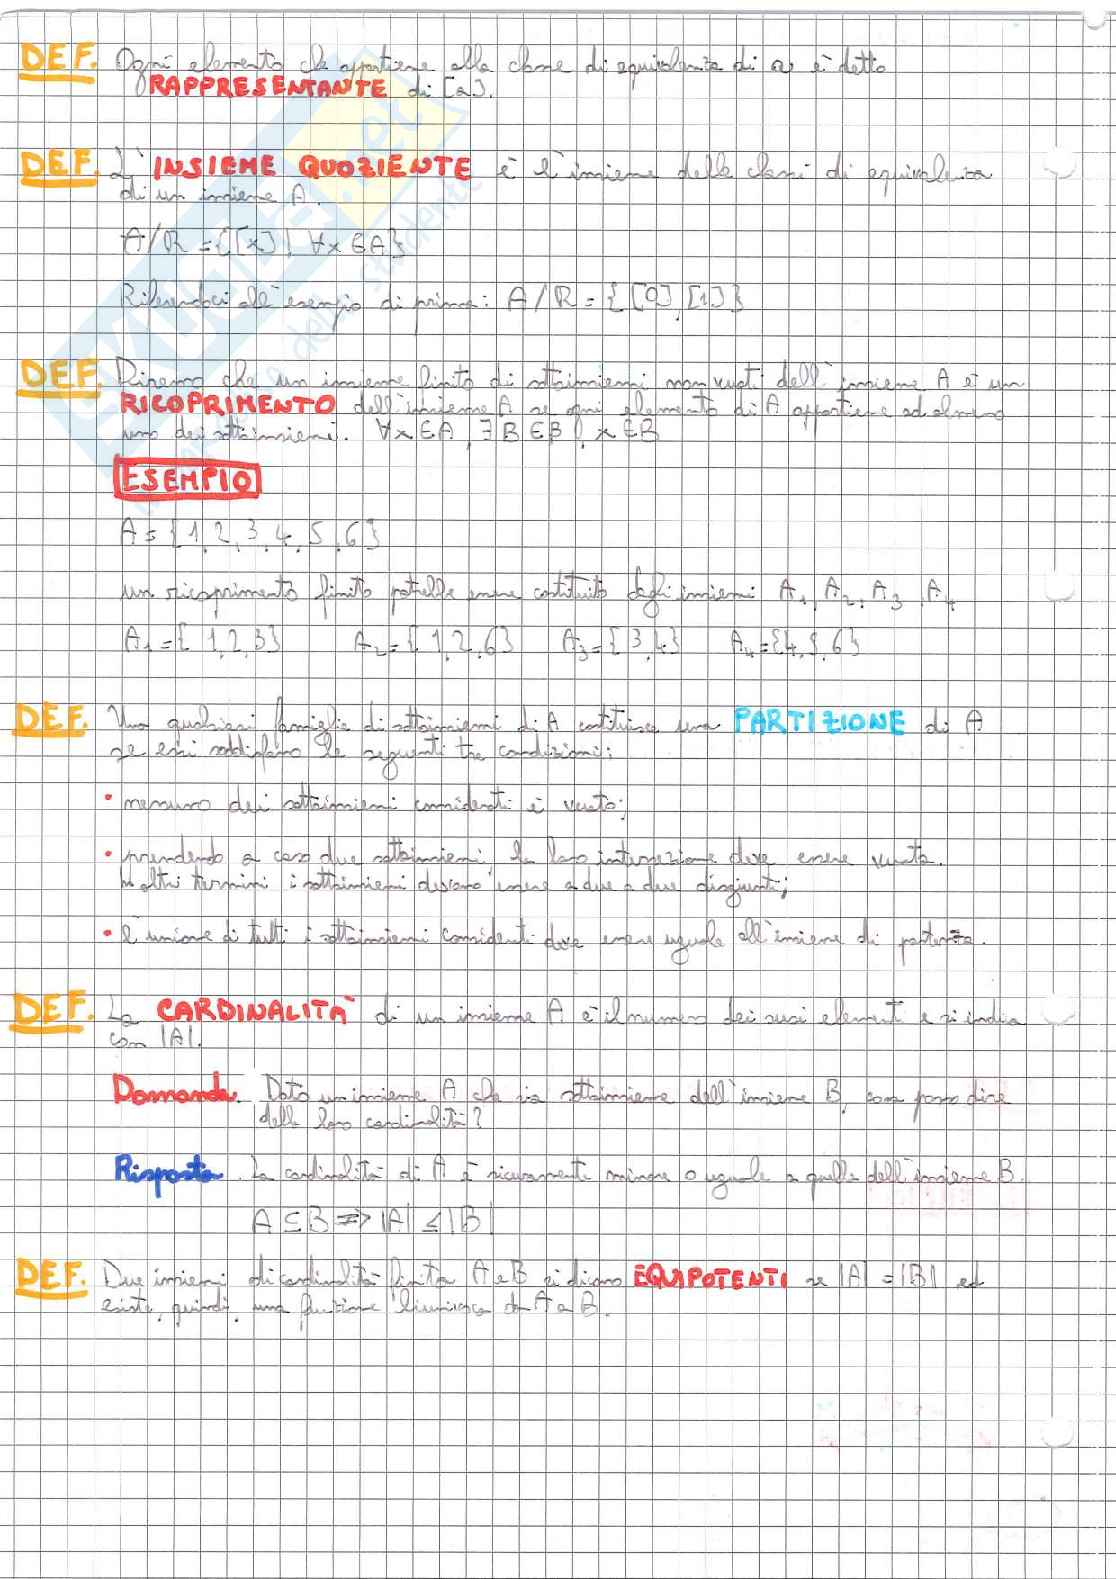 DEF. Ogni elemento che appartiene alla classe di equivalenza di a è detto
RAPPRESENTANTE di [a].
DEF. L'INSIEME QUOZIENTE è l'insieme delle classi di equivalenza
di un insieme A.
A/R = {[x] | ∀x∈A}
Riferendoci all'esempio di prima: A/R = {[0], [1]}
DEF. Diremo che un insieme finito di sottoinsiemi non vuoti dell'insieme A è un
RICOPRIMENTO dell'insieme A se ogni elemento di A appartiene ad almeno
uno dei sottoinsiemi. ∀x∈A, ∃B∈β | x∈B
ESEMPIO
A = {1, 2, 3, 4, 5, 6}
un ricoprimento finito potrebbe essere costituito dagli insiemi A₁, A₂, A₃, A₄
A₁ = {1, 2, 3} A₂ = {1, 2, 6} A₃ = {3, 4} A₄ = {4, 5, 6}
DEF. Una qualsiasi famiglia di sottoinsiemi di A costituisce una PARTIZIONE di A
se essi soddisfano le seguenti tre condizioni:
• nessuno dei sottoinsiemi considerati è vuoto;
• prendendo a caso due sottoinsiemi, la loro intersezione deve essere vuota.
In altri termini i sottoinsiemi devono essere a due a due disgiunti;
• l'unione di tutti i sottoinsiemi considerati deve essere uguale all'insieme di partenza.
DEF. La CARDINALITÀ di un insieme A è il numero dei suoi elementi e si indica
con |A|.
Domanda. Dato un insieme A che sia sottoinsieme dell'insieme B, cosa posso dire
della loro cardinalità?
Risposta. La cardinalità di A è sicuramente minore o uguale a quella dell'insieme B.
A ⊆ B ⇒ |A| ≤ |B|
DEF. Due insiemi di cardinalità finita A e B si dicono EQUIPOTENTI se |A| = |B| ed
esiste, quindi, una funzione biunivoca da A a B.